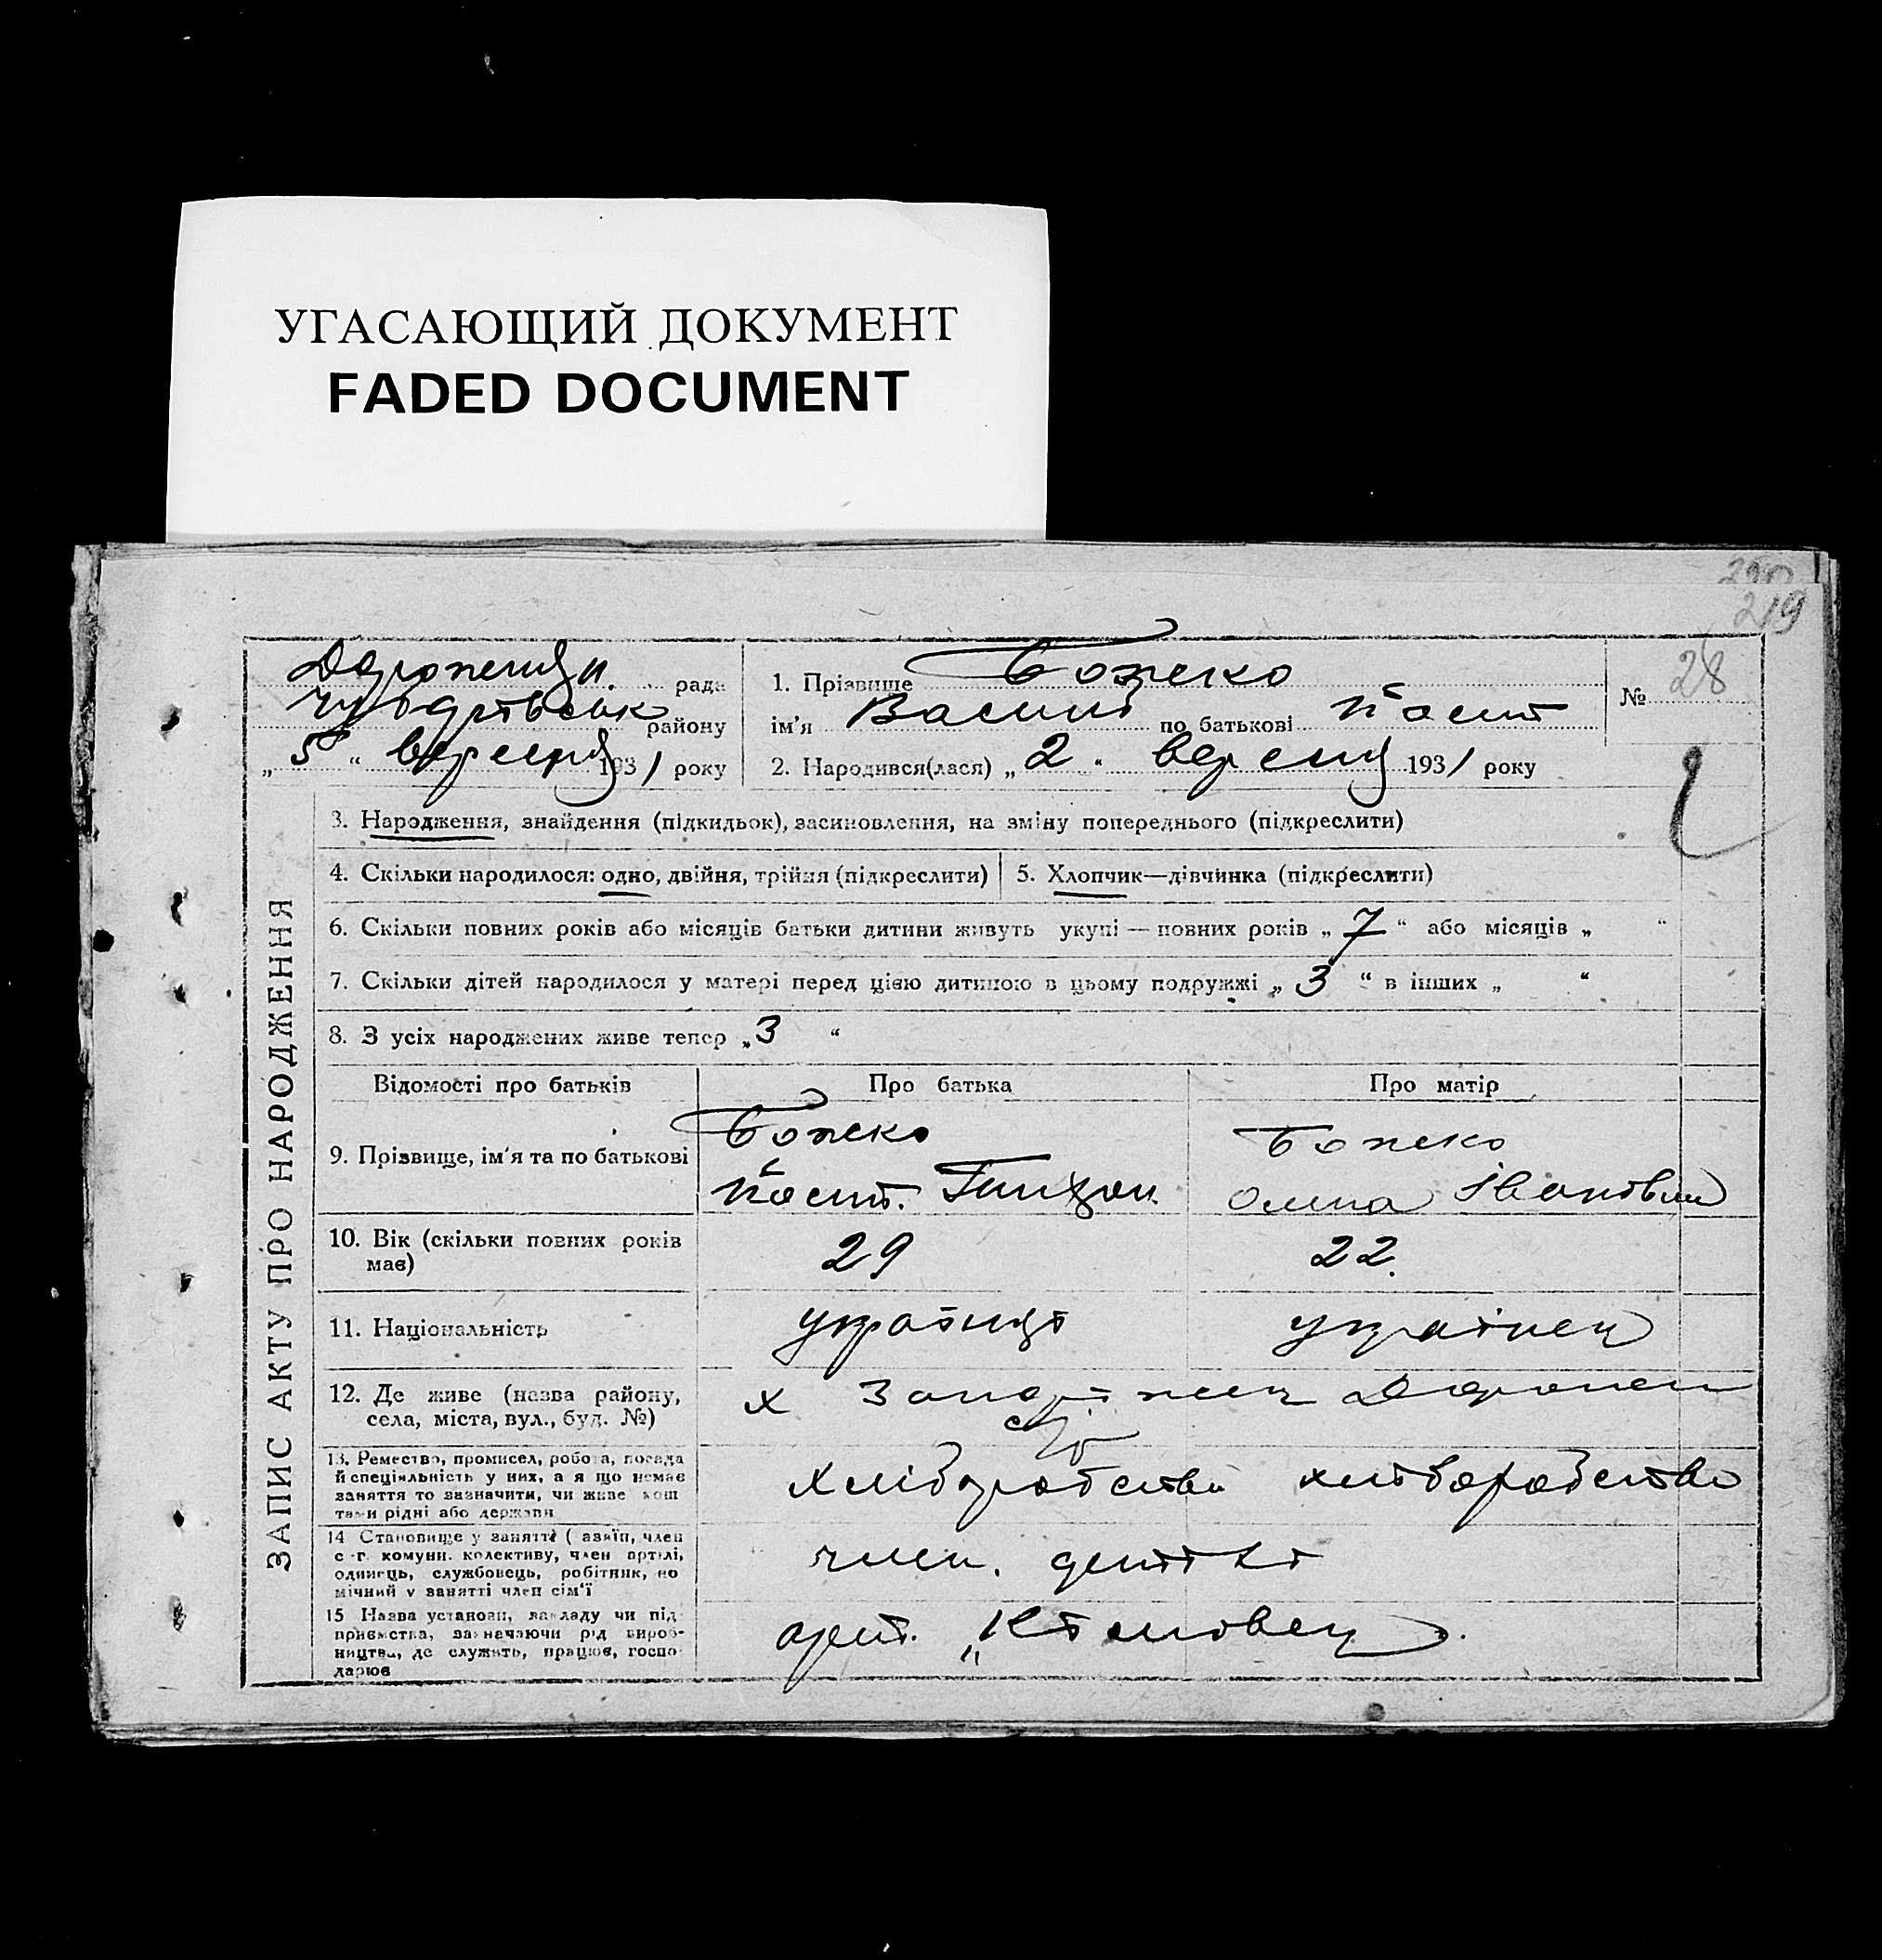 УГАСАЮЩИЙ ДОКУМЕНТ
FADED DOCUMENT
219
рада
району
„5“ вересня 1931 року
1. Прізвище Божко
ім'я Василь по батькові Кост
2. Народився(лася) „2“ вересня 1931 року
№ 28
ЗАПИС АКТУ ПРО НАРОДЖЕННЯ
3. Народження, знайдення (підкидьок), засиновлення, на зміну попереднього (підкреслити)
4. Скільки народилося: одно, двійня, трійня (підкреслити)
5. Хлопчик—дівчинка (підкреслити)
6. Скільки повних років або місяців батьки дитини живуть укупі — повних років „7“ або місяців „ “
7. Скільки дітей народилося у матері перед цією дитиною в цьому подружжі „3“ в інших „ “
8. З усіх народжених живе тепер „3“
Відомості про батьків
Про батька
Про матір
9. Прізвище, ім'я та по батькові
Божко
Кост.
Божко
10. Вік (скільки повних років має)
29
22.
11. Національність
українець
12. Де живе (назва району,
села, міста, вул., буд. №)
х
13. Ремество, промисел, робота, посада
й спеціяльність у них, а я що немає
заняття то зазначити, чи живе кош
тами рідні або держави
хліборобство
хліборобство
14 Становище у занятті (хазяїн, член
с-г. комуни. колективу, член артілі,
одинець, службовець, робітник, по
мічний у занятті член сім'ї
член.
15 Назва установи, закладу чи під
приємства, зазначаючи рід вироб-
ництва, де служить, працює, госпо-
дарює
арт.